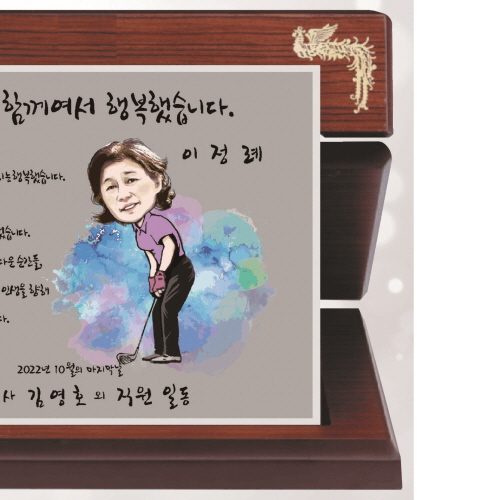 함께여서 행복했습니다.
이 정 례
행복했습니다.
순간들,
인생을 향해
2022년 10월의 마지막날
사 김 영 호 외 직원 일동